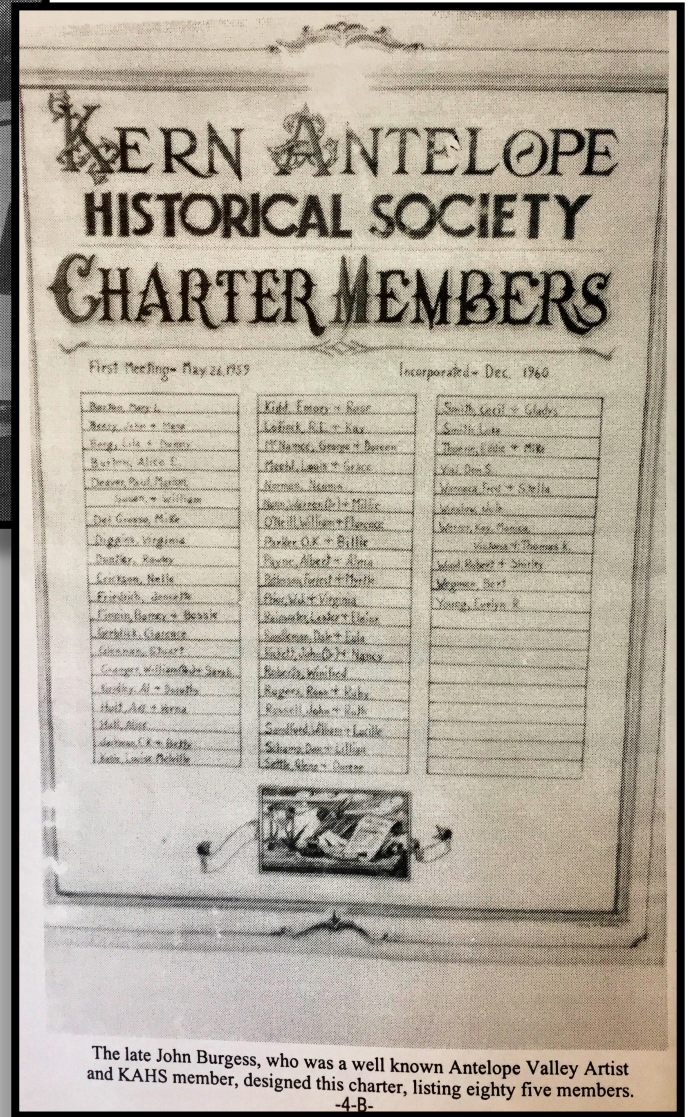 KERN ANTELOPE
HISTORICAL SOCIETY
CHARTER MEMBERS
First Meeting- May 26, 1959
Incorporated- Dec. 1960
Barton, Mary L.
Beery, John + Mena
Berg, Lila + Danny
Burton, Alice E.
Deaver, Paul, Marion,
Susan, + William
Del Grosso, Mike
Diggins, Virginia
Duntley, Rowley
Erickson, Nelle
Friedrich, Jeanette
Finnin, Barney + Bessie
Gerblick, Clarence
Stuart
Granger, William + Sarah
Al + Dorothy
Holt, Art + Verna
Hull, Alice
Jackman, C.R. + Betty
Louise Melville
Kidd, Emory + Rose
LoBuck, R.L. + Kay
McNamee, George + Doreen
Meehl, Louis + Grace
Norman, Naomi
Nunn, Warren (Dr) + Millie
O'Neill, William + Florence
Parker, O.K. + Billie
Payne, Albert + Alma
Forrest + Myrtle
Walt + Virginia
Rainwater, Lester + Elaine
Sandleman, Dale + Eula
John (Dr) + Nancy
Roberts, Winifred
Rogers, Ross + Ruby
Russell, John + Ruth
Sandford, William + Lucille
Schamp, Don + Lillian
Settle, Glenn + Dorene
Smith, Cecil + Gladys
Smith, Lute
Eddie + Mike
Don S.
Fred + Stella
Winslow,
Kay, Monica,
+ Thomas K.
Wood, Robert + Shirley
Wegman, Bert
Young, Evelyn R.
The late John Burgess, who was a well known Antelope Valley Artist
and KAHS member, designed this charter, listing eighty five members.
-4-B-